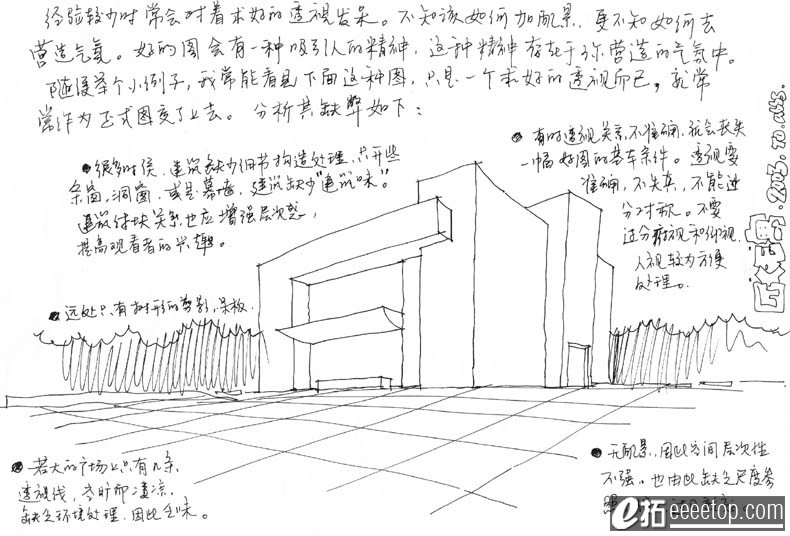 经验较少时常会对着求好的透视发呆。不知该如何加配景,更不知如何去
营造气氛。好的图会有一种吸引人的精神,这种精神存在于你营造的气氛中。
随便举个小例子,我常能看见下面这种图,只是一个求好的透视而已,就常
常作为正式图交了上去。分析其缺弊如下:
有时透视关系不准确,就会丧失
一幅好图的基本条件。透视要
准确,不失真,不能过
分对称。不要
过分俯视和仰视,
人视较为方便
处理。
很多时候,建筑缺少细节构造处理,只开些
条窗,洞窗,或是幕墙,建筑缺少"建筑味"。
建筑体块关系也应增强层次感,
提高观看者的兴趣。
远处只有树形的剪影,呆板.
若大的广场上只有几条
透视线,空旷而凄凉.
缺乏环境处理,因此乏味。
无配景,因此空间层次性
不强。也由此缺乏尺度参
照
e拓 eeeetop.com